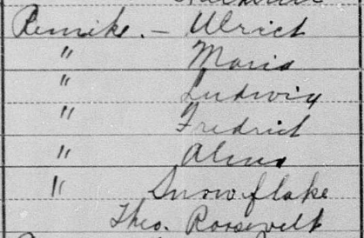 Remike. — Ulrich
" Maria
" Ludwig
" Fredrich
" Alma
" Snowflake
Theo. Roosevelt